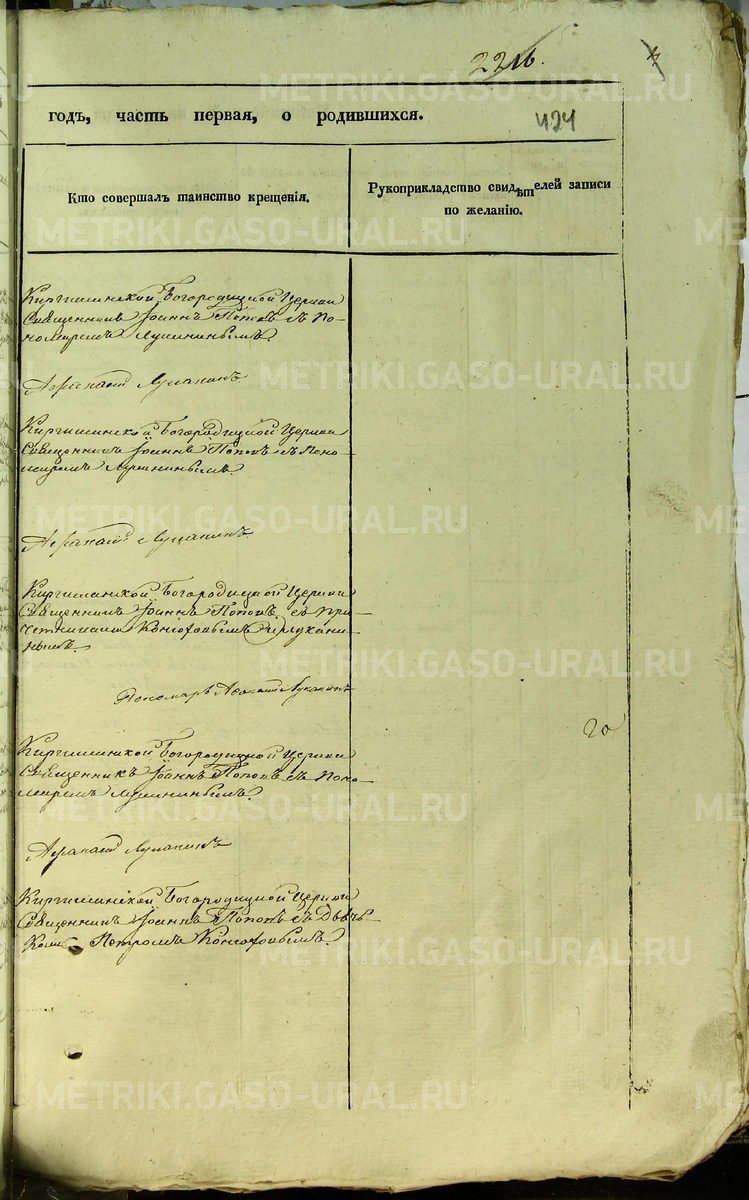 2216.
424
годъ, часть первая, о родившихся.
Кто совершалъ таинство крещенія.
Рукоприкладство свидѣтелей записи
по желанію.
Киргишанской Богородицкой Церкви
Священникъ Іоаннъ Поповъ съ По-
номаремъ Луканинымъ.
Афанасій Луканинъ
Киргишанской Богородицкой Церкви
Священникъ Іоаннъ Поповъ съ Поно-
маремъ Луканинымъ.
Афанасій Луканинъ
Киргишанской Богородицкой Церкви
Священникъ Іоаннъ Поповъ съ при-
четниками и Лукани-
нымъ.
Пономарь Афанасій Луканинъ
20
Киргишанской Богородицкой Церкви
Священникъ Іоаннъ Поповъ съ Поно-
маремъ Луканинымъ.
Афанасій Луканинъ
Киргишанской Богородицкой Церкви
Священникъ Іоаннъ Поповъ съ Дьяч-
комъ Петромъ
METRIKI.GASO-URAL.RU